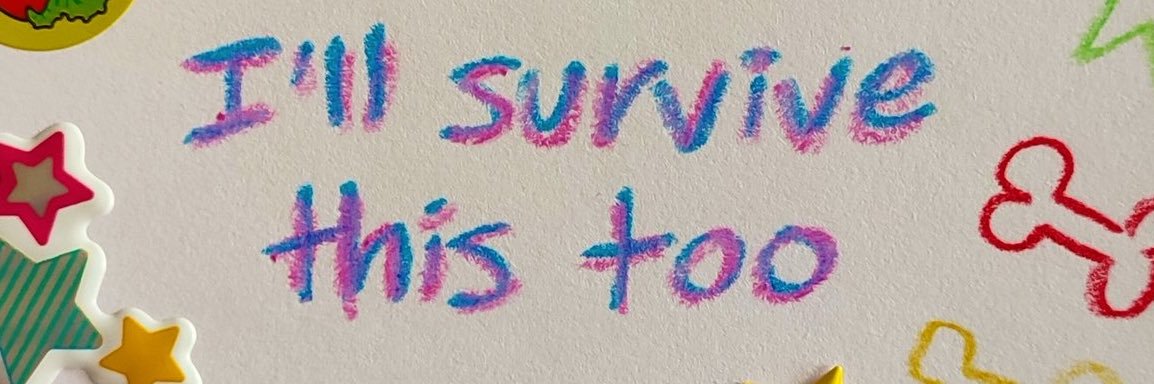 I'll survive
this too